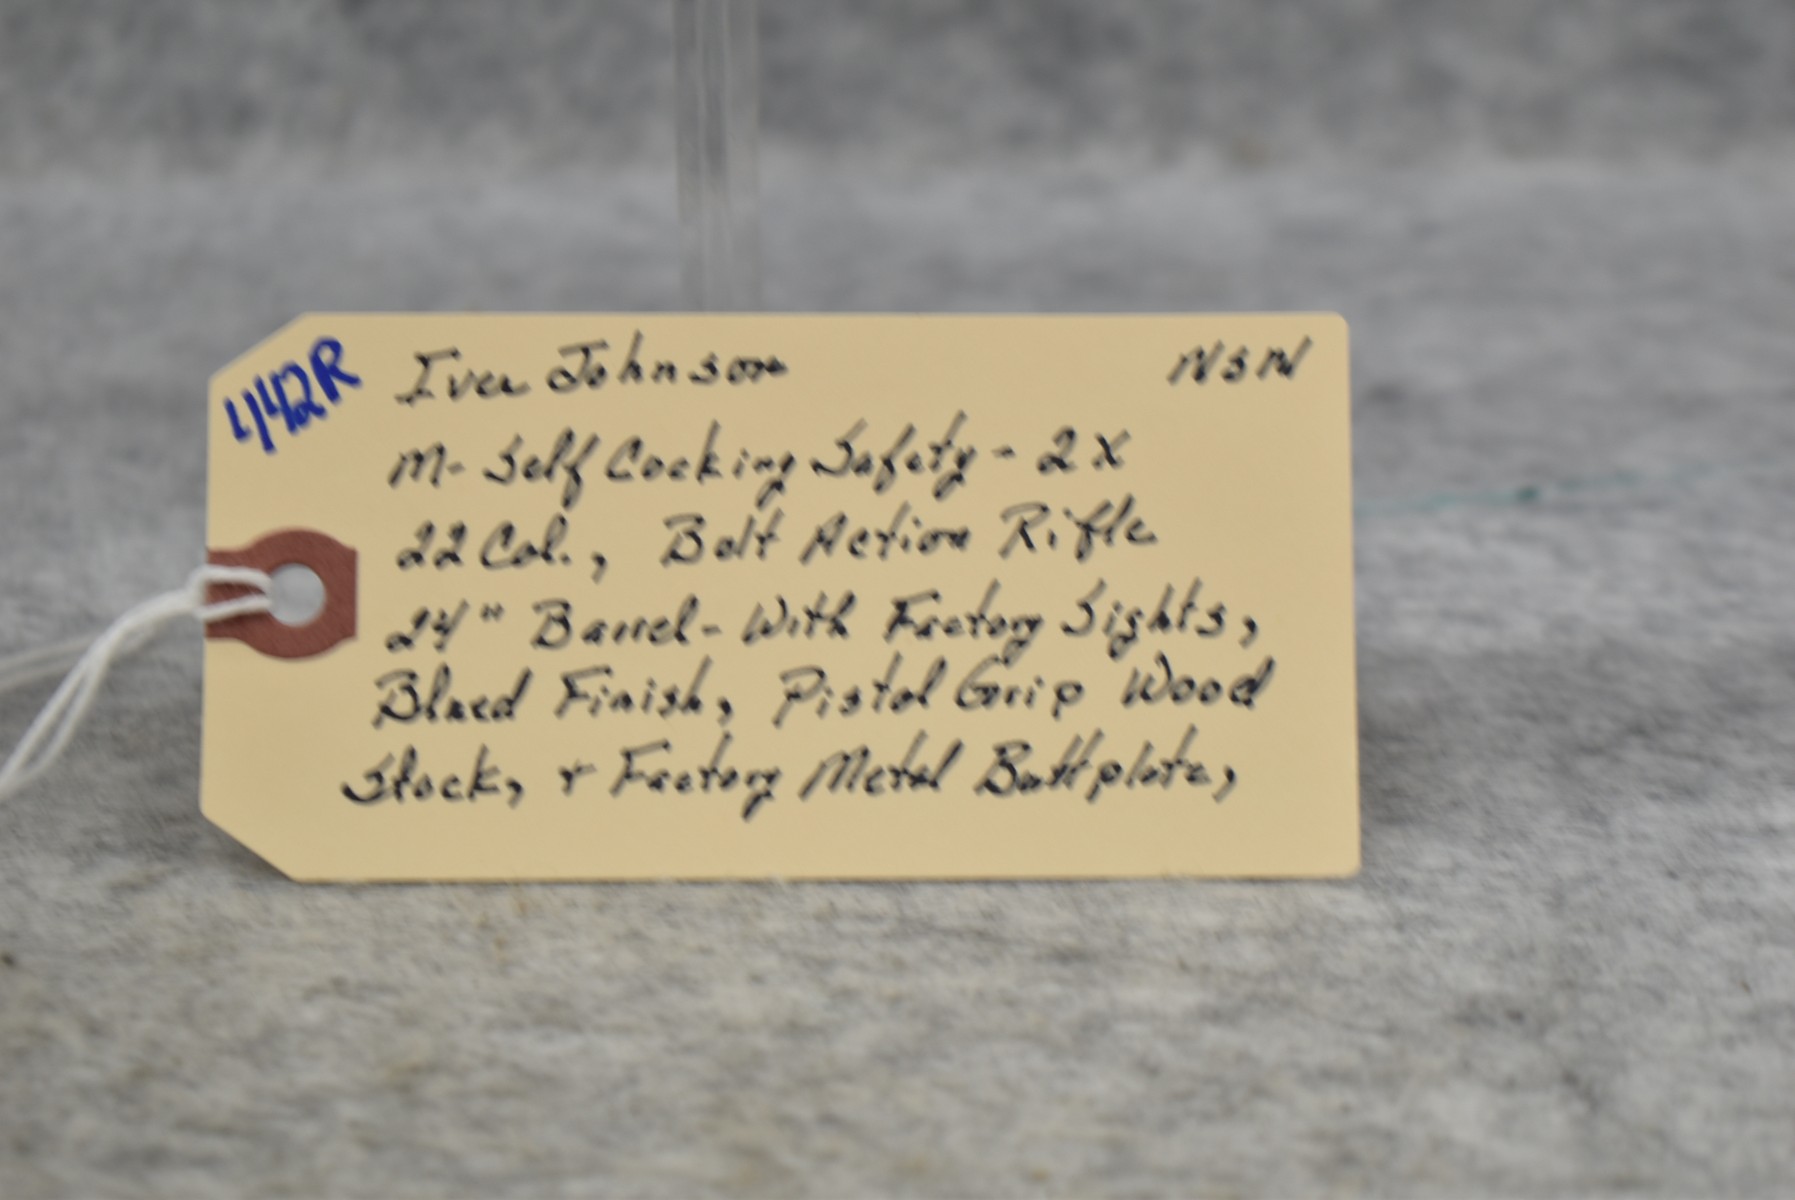 442R
Iver Johnson NSN
M- Self Cocking Safety - 2X
22 Cal., Bolt Action Rifle
24" Barrel - With Factory Sights,
Blued Finish, Pistol Grip Wood
Stock, + Factory Metal Buttplate,